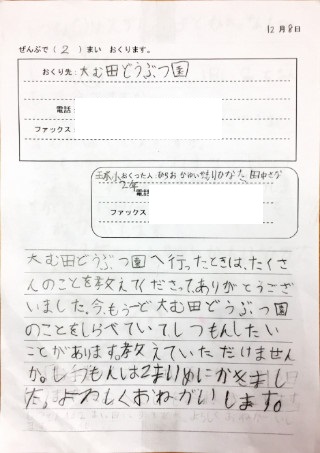 12月8日
ぜんぶで(2)まい おくります。
おくり先:大む田どうぶつ園
電話:
ファックス:
おくった人
2年
電話
ファックス
大む田どうぶつ園へ行ったときは、たくさ
んのことを教えてくださってありがとうござ
いました。今、もう一ど大む田どうぶつ園
のことをしらべていてしつもんしたい
ことがあります。教えていただけません
か。しつもんは2まいめにかきまし
た。よろしくおねがいします。